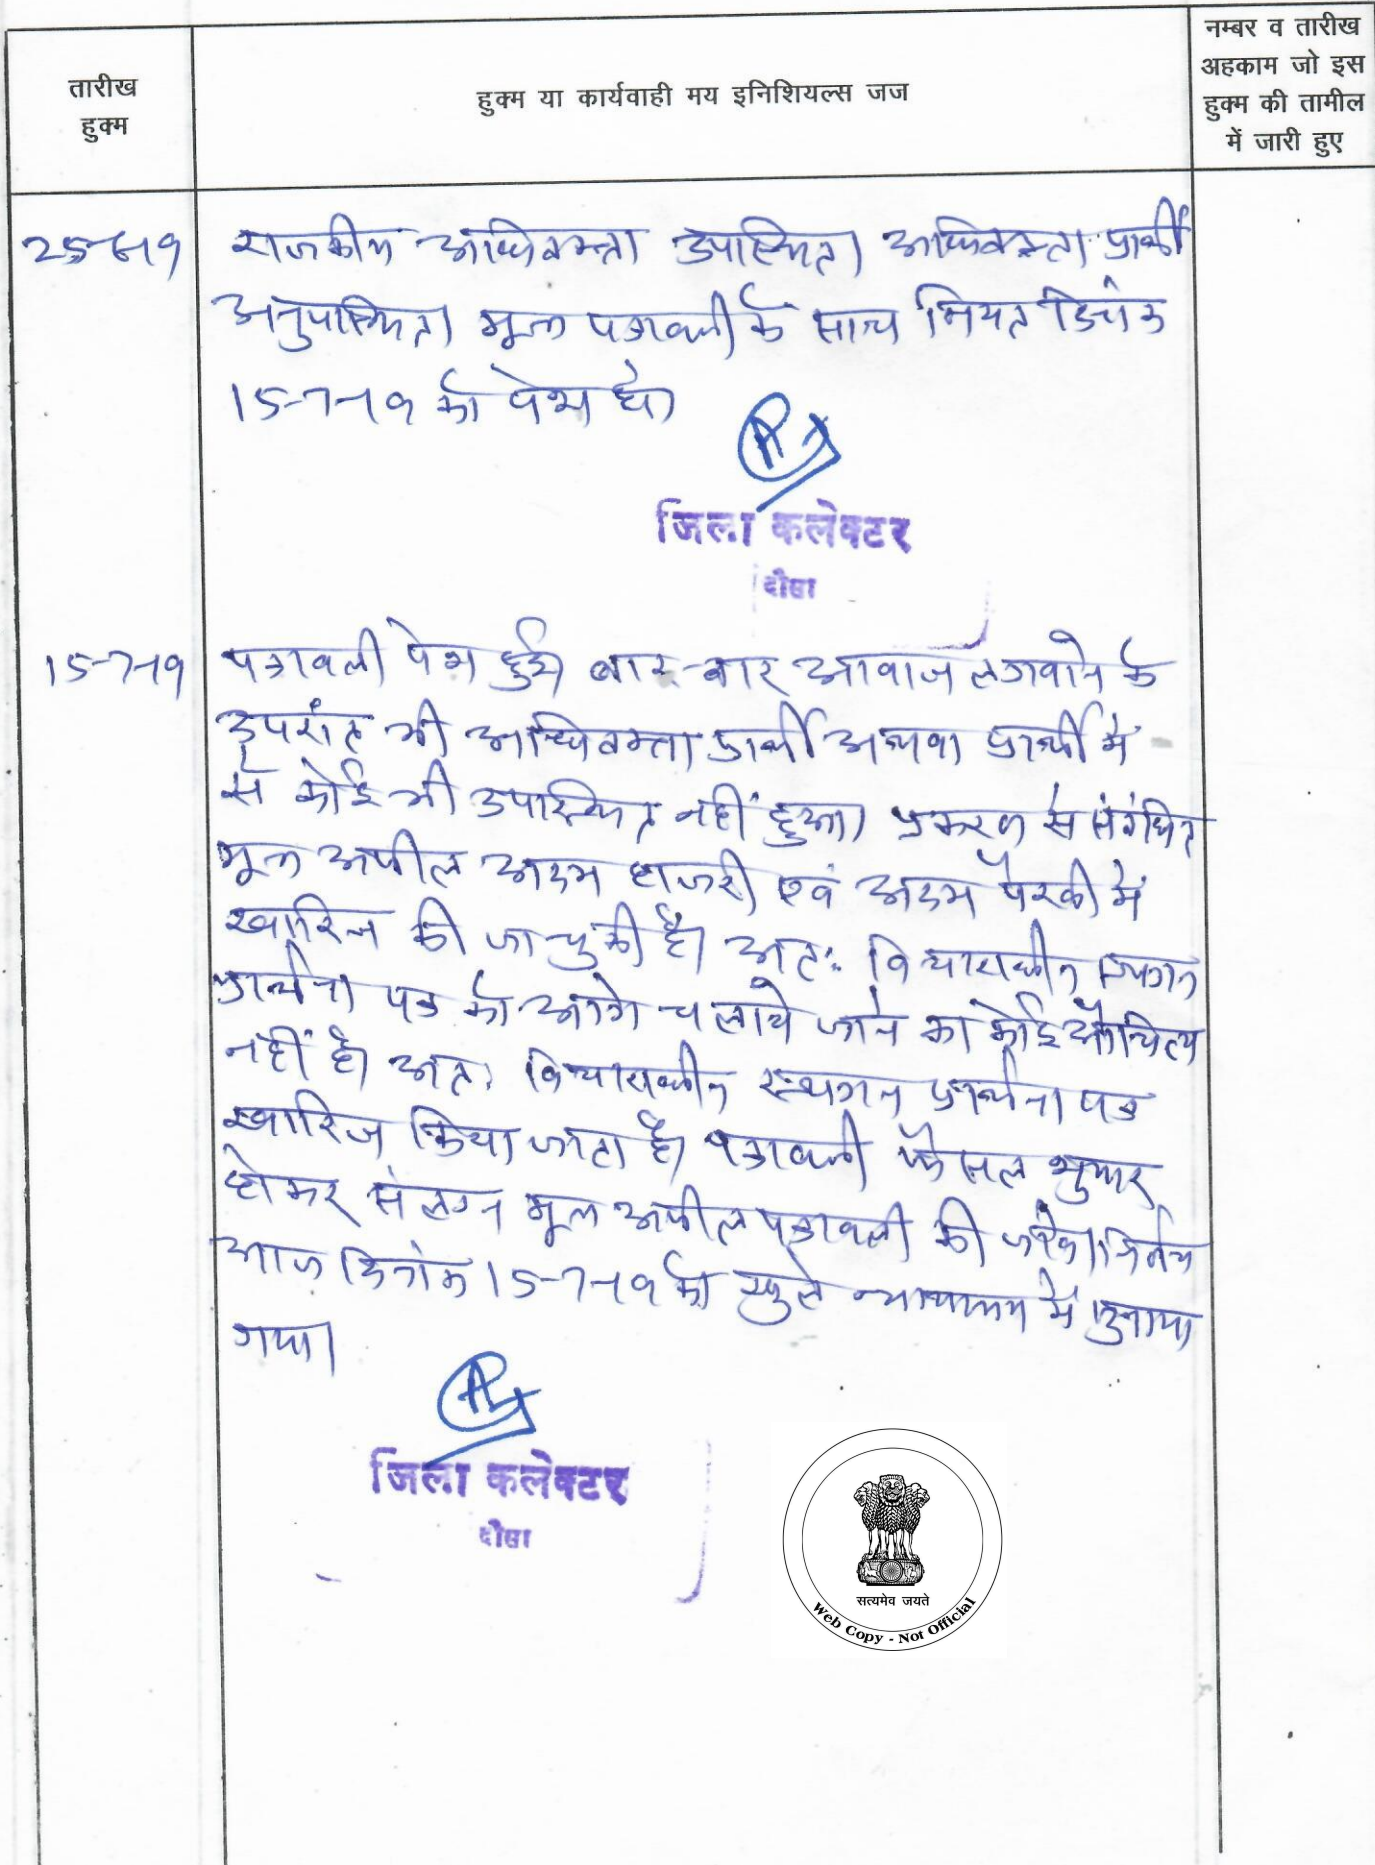 तारीख
हुक्म
हुक्म या कार्यवाही मय इनिशियल्स जज
नम्बर व तारीख
अहकाम जो इस
हुक्म की तामील
में जारी हुए
25-6-19
राजकीय अधिवक्ता उपस्थित। अधिवक्ता प्रार्थी
अनुपस्थित। मूल पत्रावली के साथ नियत दिनांक
15-7-19 को पेश हो।
जिला कलेक्टर
दौसा
15-7-19
पत्रावली पेश हुई। बार-बार आवाज लगवाने के
उपरांत भी अधिवक्ता प्रार्थी अथवा प्रार्थी में
से कोई भी उपस्थित नहीं हुआ। प्रकरण से संबंधित
मूल अपील अदम हाजरी एवं अदम पैरवी में
खारिज की जा चुकी है। अतः विचाराधीन स्थगन
प्रार्थना पत्र को आगे चलाये जाने का कोई औचित्य
नहीं है। अतः विचाराधीन स्थगन प्रार्थना पत्र
खारिज किया जाता है। पत्रावली फैसल शुमार
होकर संलग्न मूल अपील पत्रावली की जावे। निर्णय
आज दिनांक 15-7-19 को खुले न्यायालय में सुनाया
गया।
जिला कलेक्टर
दौसा
सत्यमेव जयते
Web Copy - Not Official